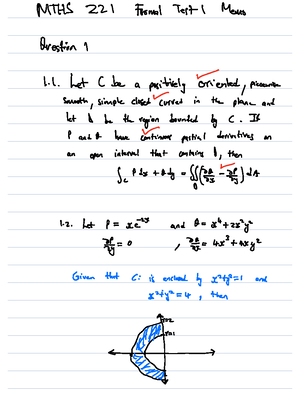 MTHS 221 Formal Test 1 Memo
Question 1
1.1. Let C be a positively oriented, piecewise
smooth, simple closed curved in the plane and
let D be the region bounded by C. If
P and Q have continuous partial derivatives on
an open interval that contains D, then
∫_C P dx + Q dy = ∬_D (∂Q/∂x - ∂P/∂y) dA
1.2. Let P = and Q = x⁴+2x²y²
∂P/∂y = 0 , ∂Q/∂x = 4x³ + 4xy²
Given that C: is enclosed by x²+y²=1 and
x²+y²=4, then
r=2
r=1